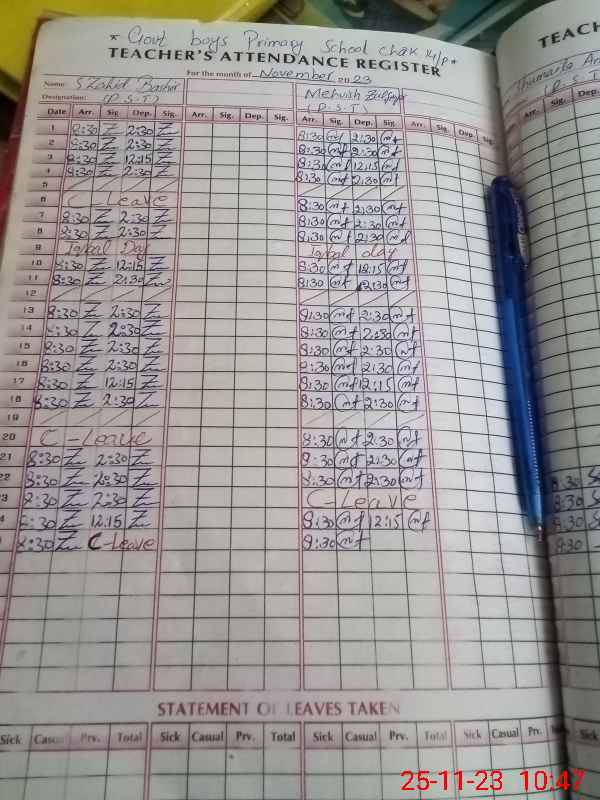 * Govt boys Primary School chak 14/P *
TEACHER'S ATTENDANCE REGISTER
For the month of November 2023
Name: S Zahid Bashir
Mehwish
Designation: (P.S.T) (P.S.T)
Date Arr. Sig. Dep. Sig. Arr. Sig. Dep. Sig. Arr. Sig. Dep. Sig. Arr. Sig. Dep. Sig.
1 8:30 2:30 8:30 2:30
2 8:30 2:30 8:30 2:30
3 8:30 12:15 8:30 12:15
4 8:30 2:30 8:30 2:30
5
6 C-Leave 8:30 2:30
7 8:30 2:30 8:30 2:30
8 8:30 2:30 8:30 2:30
9 Iqbal Day Iqbal day
10 8:30 12:15 8:30 12:15
11 8:30 2:30 8:30 2:30
12
13 8:30 2:30 8:30 2:30
14 8:30 2:30 8:30 2:30
15 8:30 2:30 8:30 2:30
16 8:30 2:30 8:30 2:30
17 8:30 12:15 8:30 12:15
18 8:30 2:30 8:30 2:30
19
20 C-Leave 8:30 2:30
21 8:30 2:30 8:30 2:30
22 8:30 2:30 8:30 2:30
23 8:30 2:30 C-Leave
4 8:30 12:15 8:30 12:15
8:30 C-Leave 8:30
STATEMENT OF LEAVES TAKEN
Sick Casual Prv. Total Sick Casual Prv. Total Sick Casual Prv. Total Sick Casual Prv. Total
TEACH
(P.S.T)
Date Arr. Sig.
8:30
8:30
8:30
8:30
25-11-23 10:47